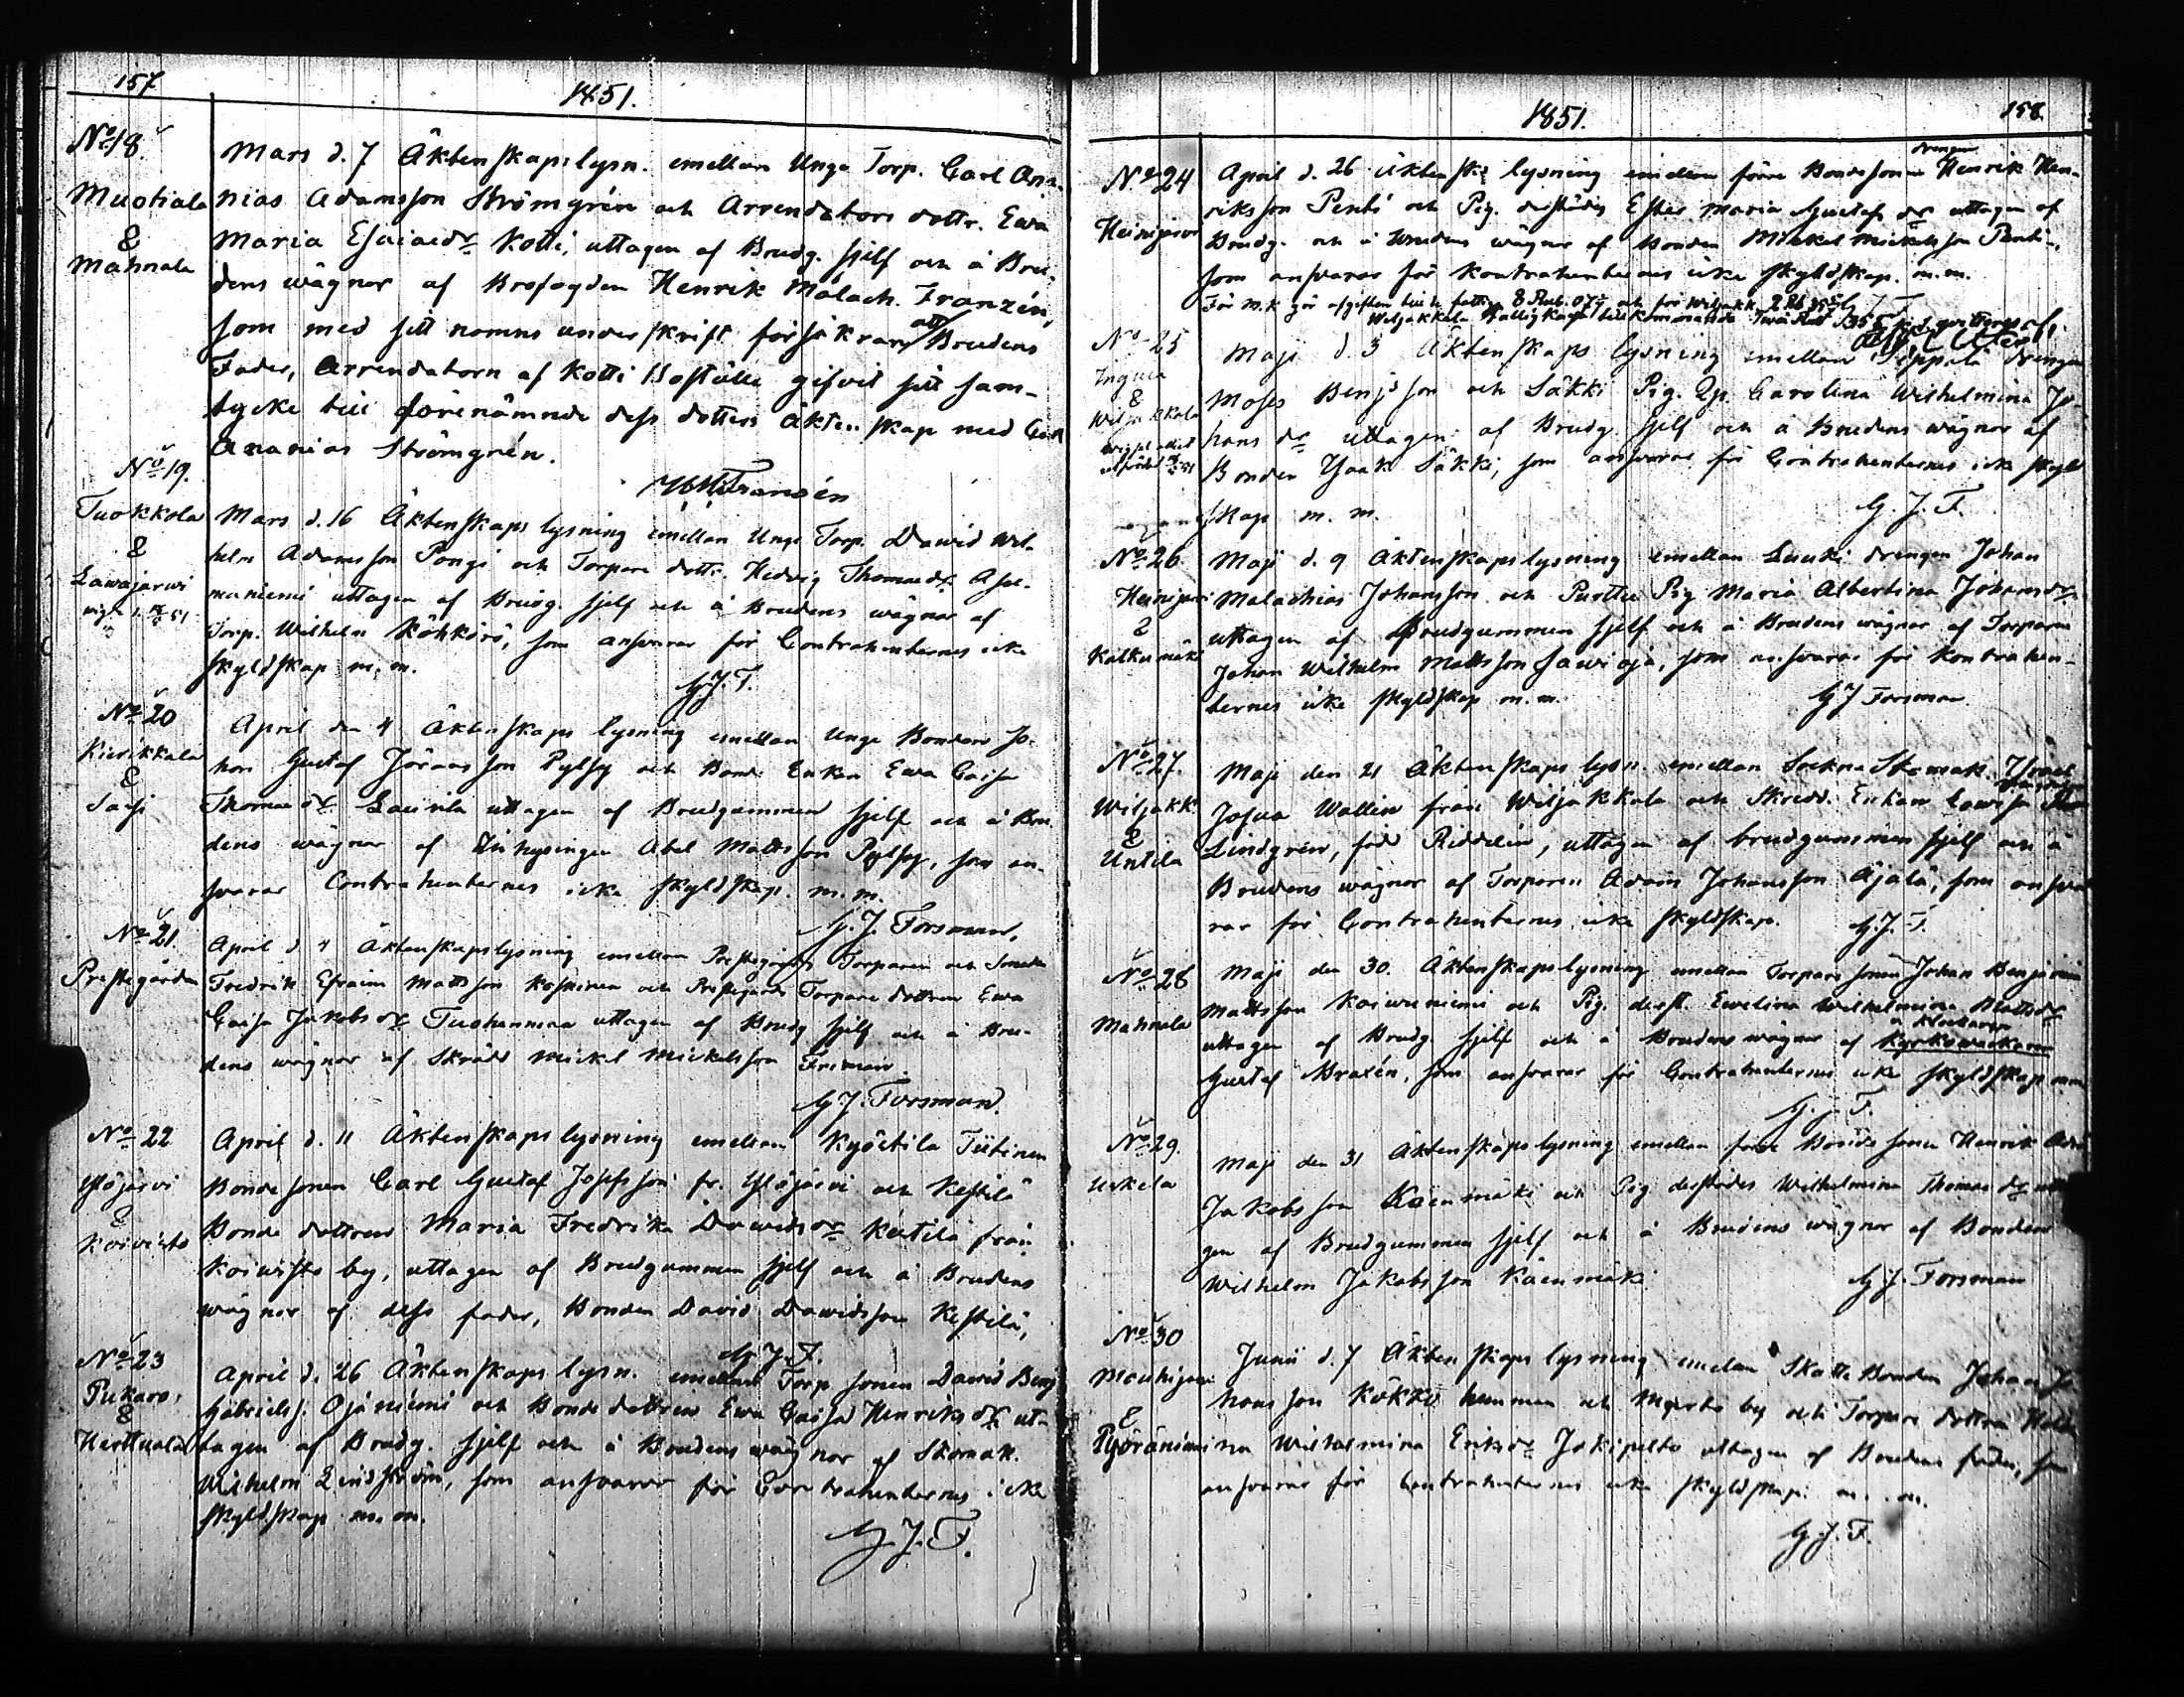 157
1851.
No 18.
Muotiala
&
Mahnala
Mars d. 7 Äktenskapslysn. emellan Unge Torp. Carl Ana-
nias Adamsson Strömgrén och Arrendators dottr. Ewa
Maria Esaiaedr Kotti, uttagen af Brudg. sjelf och å Bru-
dens wägnar af Brofogden Henrik Malach. Franzén,
som med sitt namns underskrift försäkrar att Brudens
Fader, Arrendatorn af Kotti Boställe gifvit sitt sam-
tycke till förenämnde dess dotters Äktenskap med Carl
Ananias Strömgrén.
HMFransén
No 19.
Tuokkola
&
Lawajärwi
Mars d. 16 Äktenskaps lysning emellan Unge Torp. Dawid Wil-
helm Adamsson Pongi och Torpare dottr. Hedvig Thomaedr
maniemi uttagen af Brudg. sjelf och å Brudens wägnar af
Torp. Wilhelm Köhkörö, som answarar för Contrahenternes icke
skyldskap m. m.
G.J.F.
No 20
Kierikkala
&
Sarsi
April den 4 Äktenskaps lysning emellan Unge Bonden Jo-
han Gustaf Jöransson Pylsy och Bonde Enkan Ewa Caisa
Thomaedr Laurila uttagen af Brudgummen sjelf och å Bru-
dens wägnar af Inhysingen Abel Mattsson Pylsy, som an-
swarar Contrahenternes icke skyldskap. m. m.
G. J. Forsman.
No 21
Prestegården
April d 4 Äktenskapslysning emellan Prestegårds Torparen och Smeden
Fredrik Efraim Mattsson Koskinen och Prestegårds Torpare dottren Ewa
Caisa Jakobsdr Tuohenmaa uttagen af Brudg sjelf och å Bru-
dens wägnar af Skrädd Mickel Mickelsson Friman.
G J. Forsman.
No 22
Ylöjärvi
&
Koivisto
April d. 11 Äktenskaps lysning emellan Kyöstilä Tiitinen
Bonde sonen Carl Gustaf Josefsson fr. Ylöjärvi och Kestilä
Bonde dottren Maria Fredrika Dawidsdr Kestilä från
Koiwisto by, uttagen af Brudgummen sjelf och å Brudens
wägnar af dess fader, Bonden David Dawidsson Kestilä,
G. J. F.
No 23
Pukara
&
Herttuala
April d. 26 Äktenskaps lysn. emellan Torp sonen Dawid Benj
Gabrielss. Ojaniemi och Bonde dottren Ewa Caisa Henriksdr ut-
tagen af Brudg. sjelf och å Brudens wägnar af Skomak.
Wilhelm Lindström, som answarar för Contrahenternes icke
skyldskap m. m.
G J. F.
1851.
158
No 24
Heinijärvi
drengen
April d. 26 äktensk. lysning emellan förre Bondsonen Henrik Hen-
riksson Penti och Pig. derstädes Ester Maria Gustafsdr uttagen af
Brudg. och å Brudens wägnar af Bonden Mickel Mickelsson Penti,
som answarar för Kontrahenternes icke skyldskap. m.m.
No 25
Ingula
&
Wiljakkala
Maji d. 3 Äktenskaps lysning emellan Seppälä drengen
Moses Benjsson och Säkki Pig. Carolina Wilhelmina Jo-
hansdr uttagen af Brudg. sjelf och å Brudens wägnar af
Bonden Isaak Säkki, som answarar för Contrahenternes icke skyld
skap m. m.
G. J. F.
No 26
Heinijärvi
&
Kalkunmäki
Maji d. 9 Äktenskapslysning emellan Luuki drengen Johan
Malachias Johansson och Puottu Pig Maria Albertina Johansdr
uttagen af Brudgummen sjelf och å Brudens wägnar af Torparn
Johan Wilhelm Mattsson Sawioja, som answarar för Kontrahen-
ternes icke skyldskap m. m.
G J Forsman
No 27.
Wiljakk.
&
Untila
Maji den 21 Äktenskaps lysn. emellan Sockne Skomak. Israel
Josua Wallin från Wiljakkala och Skredd. Enkan Lowisa
Lindgrén, född Riddelin, uttagen af brudgummen sjelf och å
Brudens wägnar af Torparen Adam Johansson Äjälä, som answa
rar för Contrahenternes icke skyldskap.
G.J.F.
No 28
Mahnala
Maji den 30. Äktenskapslysning emellan Torpare sonen Johan Benjamin
Mattsson Koiwuniemi och Pig. derst. Ewelina Wilhelmina Mattsdr
uttagen af Brudg. sjelf och å Brudens wägnar af Kyrkowaktaren
Gustaf Braxén, som answarar för Contrahenternes icke skyldskap mm
G. J. F.
No 29.
Uskela
Maji den 31 Äktenskapslysning emellan förre Bonde sonen Henrik
Jakobsson Käenmäki och Pig derstädes Wilhelmina Thomaedr utta
gen af Brudgummen sjelf och å Brudens wägnar af Bonden
Wilhelm Jakobsson Käenmäki
G J. Forsman
No 30
Mauhijärvi
&
Pyöräniemi
Junii d. 7 Äktenskaps lysning emellan Skatte Bonden Johan Jo
hansson Kökkö hemman och by och Torpare dottren
na Wilhelmina Eriksdr Jokipelto uttagen af Brudens fader, som
answarar för Contrahenternes icke skyldskap. m. m.
G J. F.